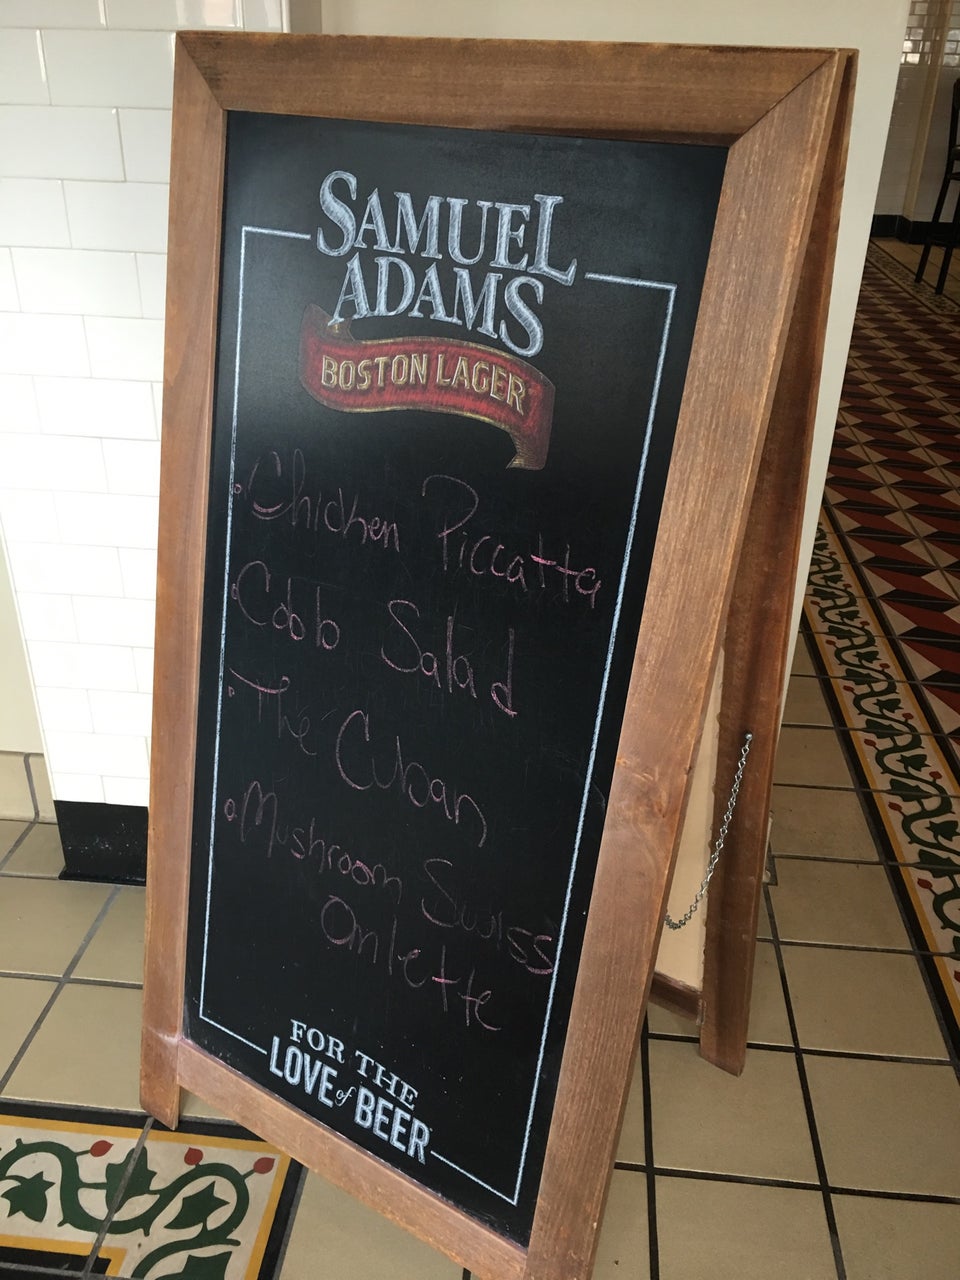 SAMUEL
ADAMS
BOSTON LAGER
• Chicken Piccatta
• Cobb Salad
• The Cuban
• Mushroom Swiss
Omlette
FOR THE
LOVE of BEER